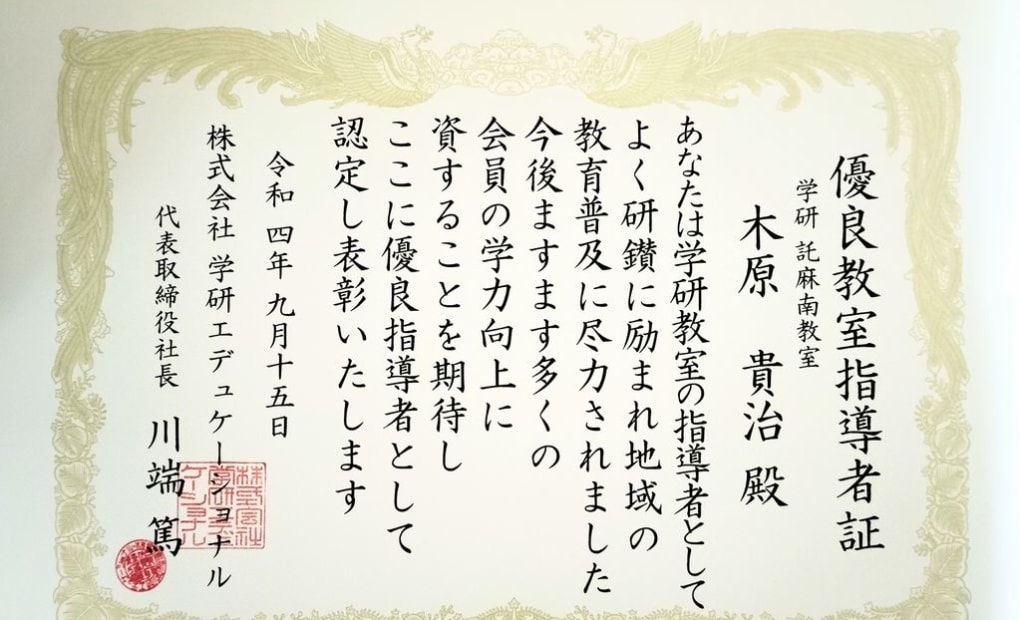 優良教室指導者証
学研 託麻南教室
木原 貴治 殿
あなたは学研教室の指導者として
よく研鑽に励まれ地域の
教育普及に尽力されました
今後ますます多くの
会員の学力向上に
資することを期待し
ここに優良指導者として
認定し表彰いたします
令和 四年 九月十五日
株式会社 学研エデュケーショナル
代表取締役社長 川端 篤